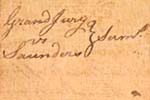 Grand Jury
vs } Sum.s
Saunders